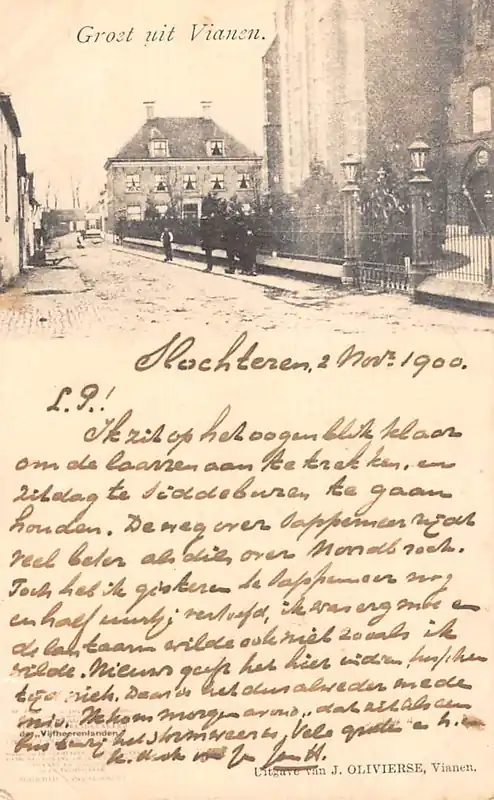 Groet uit Vianen.
Slochteren, 2 Novr. 1900.
L. P.!
Ik zit op het oogenblik klaar
om de laarzen aan te trekken, en
zitdag te Siddeburen te gaan
houden. De weg over Sappemeer rijdt
veel beter als die over Noordbroek.
Toch heb ik gisteren te Sappemeer nog
en half uurtje vertoefd, ik was erg moe en
de lantaarn wilde ook niet zooals ik
wilde. Nieuws geeft het hier in dien
tijd niet. Daar is het dus alweder mede
mis. Ik kom morgen avond, dat zit als een
het stormweer is, vele groeten
der „Vijfheerenlanden"
Uitgave van J. OLIVIERSE, Vianen.